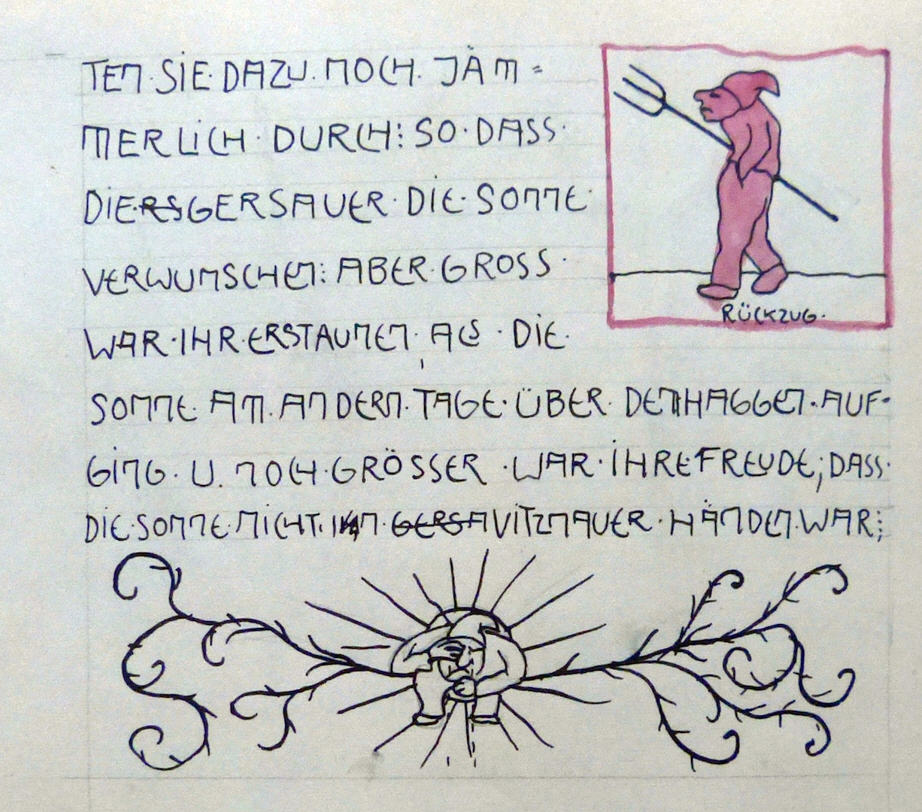 TEN·SIE·DAZU·NOCH·JÄM=
MERLICH·DURCH: SO·DASS·
DIE RS GERSAUER·DIE·SONNE·
VERWUNSCHEN: ABER·GROSS·
WAR·IHR·ERSTAUNEN·ALS·DIE·
SONNE·AM·ANDERN·TAGE·ÜBER·DEM HAGGEN·AUF-
GING·U. NOCH·GRÖSSER·WAR·IHRE FREUDE, DASS·
DIE·SONNE·NICHT·IN GERSA VITZNAUER·HÄNDEN·WAR:
RÜCKZUG·